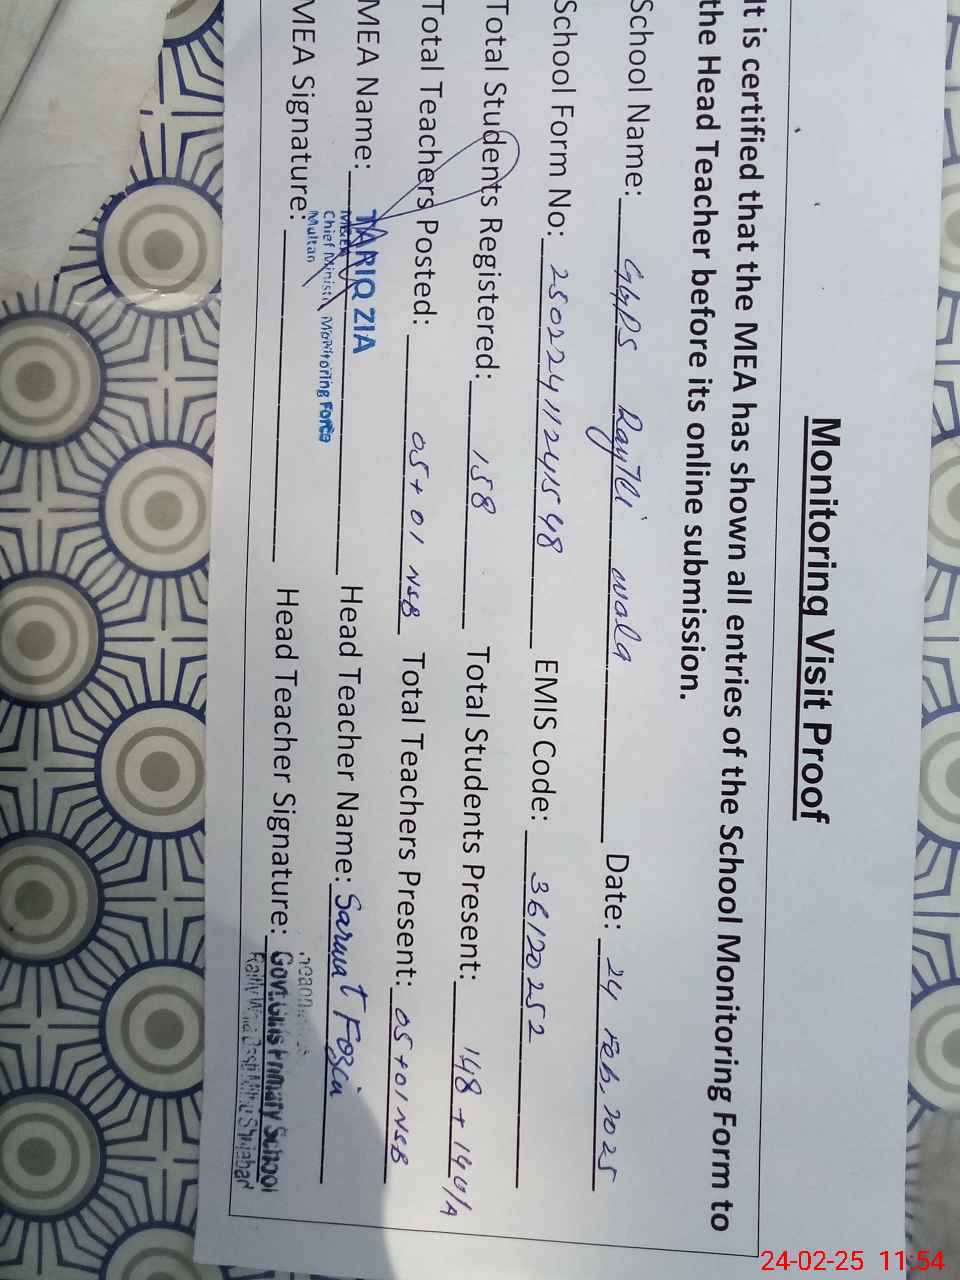 Monitoring Visit Proof
It is certified that the MEA has shown all entries of the School Monitoring Form to
the Head Teacher before its online submission.
School Name: GGPS Raythi wala Date: 24 Feb, 2025
School Form No: 25022411241548 EMIS Code: 36120252
Total Students Registered: 158 Total Students Present: 148 +
Total Teachers Posted: 05+01 NSB Total Teachers Present: 05+01 NSB
MEA Name: TARIQ ZIA Head Teacher Name: Sarwat Fozia
MEA
Chief Minister Monitoring Force
Multan
MEA Signature: Head Teacher Signature:
Govt. Girls Primary School
Shujabad
24-02-25 11:54